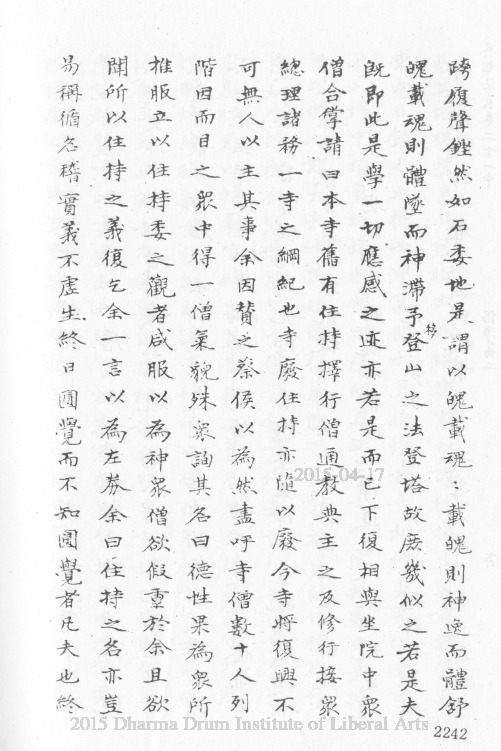 跨履聲鏗然如石委地是謂以魄載魂魂載魄則神逸而體舒
魄載魂則體墜而神滯予於登山之法登塔故庶幾似之若是夫
既即此是學一切應感之迹亦若是而已下復相與坐院中衆
僧合掌請曰本寺舊有住持擇行僧通教典主之及修行接衆
總理諸務一寺之綱紀也寺廢住持亦隨以廢今寺將復興不
可無人以主其事余因贊之蔡侯以為然盡呼寺僧數十人列
階因而目之衆中得一僧氣貌殊衆詢其名曰德性果為衆所
推服立以住持委之觀者咸服以為神衆僧欲假重於余且欲
聞所以住持之義復乞余一言以為左券余曰住持之名亦豈
易稱循名稽實義不虛生終日圓覺而不知圓覺者凡夫也終
2015-04-17
2015 Dharma Drum Institute of Liberal Arts
2242